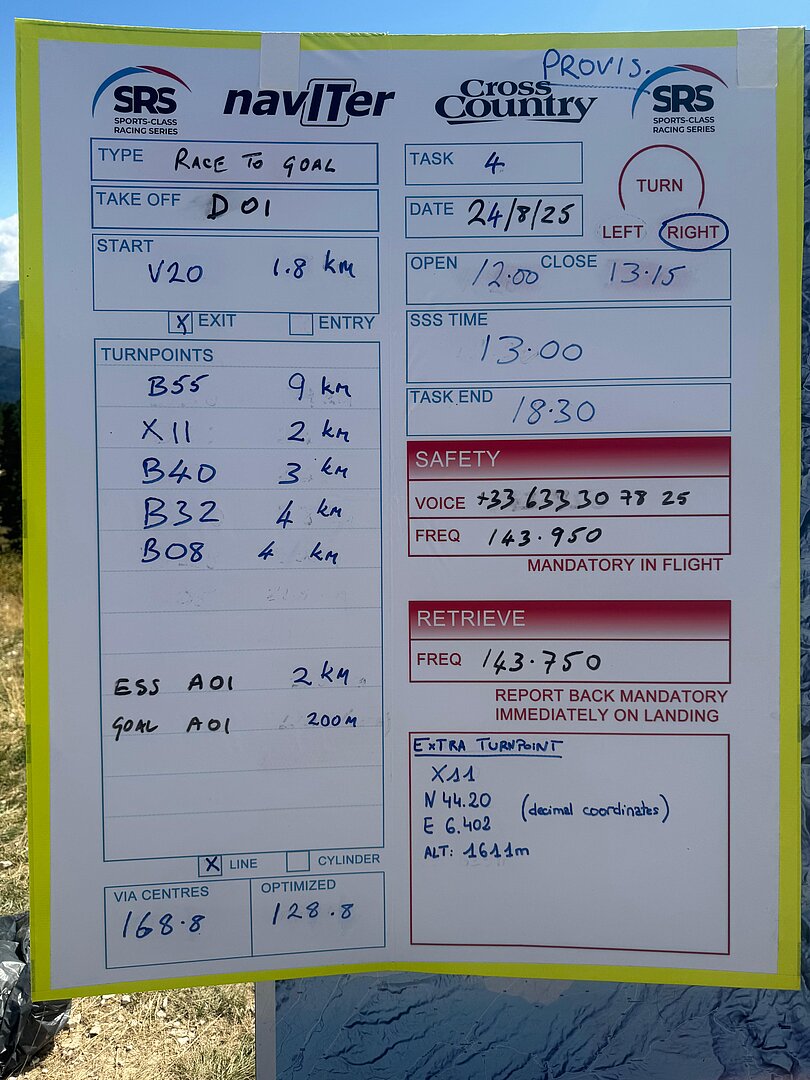 PROVIS.
SRS
SPORTS-CLASS
RACING SERIES
navITer
Cross
Country
SRS
SPORTS-CLASS
RACING SERIES
TYPE RACE TO GOAL
TAKE OFF D01
START
V20 1.8 KM
X EXIT ENTRY
TURNPOINTS
B55 9 KM
X11 2 KM
B40 3 KM
B32 4 KM
B08 4 KM
ESS A01 2 KM
GOAL A01 200M
X LINE CYLINDER
VIA CENTRES
168.8
OPTIMIZED
128.8
TASK 4
DATE 24/8/25
TURN
LEFT RIGHT
OPEN 12:00 CLOSE 13.15
SSS TIME
13.00
TASK END
18.30
SAFETY
VOICE +33 633 30 78 25
FREQ 143.950
MANDATORY IN FLIGHT
RETRIEVE
FREQ 143.750
REPORT BACK MANDATORY
IMMEDIATELY ON LANDING
EXTRA TURNPOINT
X11
N 44.20
E 6.402
(decimal coordinates)
ALT: 1611m